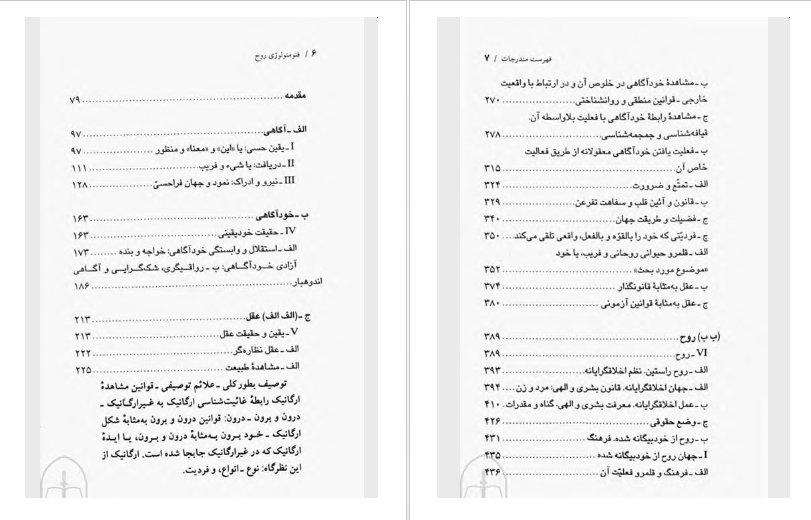 ۶ / فنومنولوژی روح
مقدمه ........ ۷۹
الف ـ آگاهی ........ ۹۷
I ـ یقین حسی: یا «این» و «معنا» و منظور ........ ۹۷
II ـ دریافت: یا شیء و فریب ........ ۱۱۱
III ـ نیرو و ادراک: نمود و جهان فراحسیّ ........ ۱۲۸
ب ـ خودآگاهی ........ ۱۶۳
IV ـ حقیقت خودیقینی ........ ۱۶۳
الف ـ استقلال و وابستگی خودآگاهی: خواجه و بنده ........ ۱۷۳
آزادی خـودآگـاهی: ب ـ رواقیگری، شک‌گـرایـی و آگـاهی
اندوهبار ........ ۱۸۶
ج ـ (الف الف) عقل ........ ۲۱۳
V ـ یقین و حقیقت عقل ........ ۲۱۳
الف ـ عقل نظاره‌گر ........ ۲۲۲
الف ـ مشاهدهٔ طبیعت ........ ۲۲۵
توصیف بطور کلی ـ علائم توصیفی ـ قوانین مشاهدهٔ
ارگانیک رابطهٔ غائیت‌شناسی ارگانیک به غیرارگـانیک ـ
درون و برون ـ درون: قوانین درون و برون به‌مثابهٔ شکل
ارگانیک ـ خـود بـرون بـه‌مثابهٔ درون و بـرون، یـا ایـدهٔ
ارگانیک که در غیرارگانیک جابجا شده است. ارگانیک از
این نظرگاه: نوع ـ انواع، و فردیت.
فهرست مندرجات / ۷
ب ـ مشاهدهٔ خودآگاهی در خلوص آن و در ارتباط با واقعیت
خارجی ـ قوانین منطقی و روانشناختی ........ ۲۷۰
ج ـ مشاهدهٔ رابطهٔ خودآگاهی با فعلیت بلاواسطه آن.
قیافه‌شناسی و جمجمه‌شناسی ........ ۲۷۸
ب ـ فعلیت یافتن خودآگاهی معقولانه از طریق فعالیت
خاص آن ........ ۳۱۵
الف ـ تمتّع و ضرورت ........ ۳۲۴
ب ـ قانون و آئین قلب و سفاهت تفرعن ........ ۳۲۹
ج ـ فضیلت و طریقت جهان ........ ۳۴۰
ج ـ فردیّتی که خود را بالقوّه و بالفعل، واقعی تلقی می‌کند ........ ۳۵۰
الف ـ قلمرو حیوانی روحانی و فریب، یا خود
«موضوع مورد بحث» ........ ۳۵۲
ب ـ عقل به‌مثابهٔ قانونگذار ........ ۳۷۴
ج ـ عقل به‌مثابهٔ قوانین آزمونی ........ ۳۸۰
(ب ب) روح ........ ۳۸۹
VI ـ روح ........ ۳۸۹
الف ـ روح راستین. نظم اخلاقگرایانه ........ ۳۹۳
الف ـ جهان اخلاقگرایانه. قانون بشری و الهی: مرد و زن ........ ۳۹۴
ب ـ عمل اخلاقگرایانه. معرفت بشری و الهی. گناه و مقدرات ........ ۴۱۰
ج ـ وضع حقوقی ........ ۴۲۶
ب ـ روح از خودبیگانه شده. فرهنگ ........ ۴۳۱
I ـ جهان روح از خودبیگانه شده ........ ۴۳۵
الف ـ فرهنگ و قلمرو فعلیّت آن ........ ۴۳۶